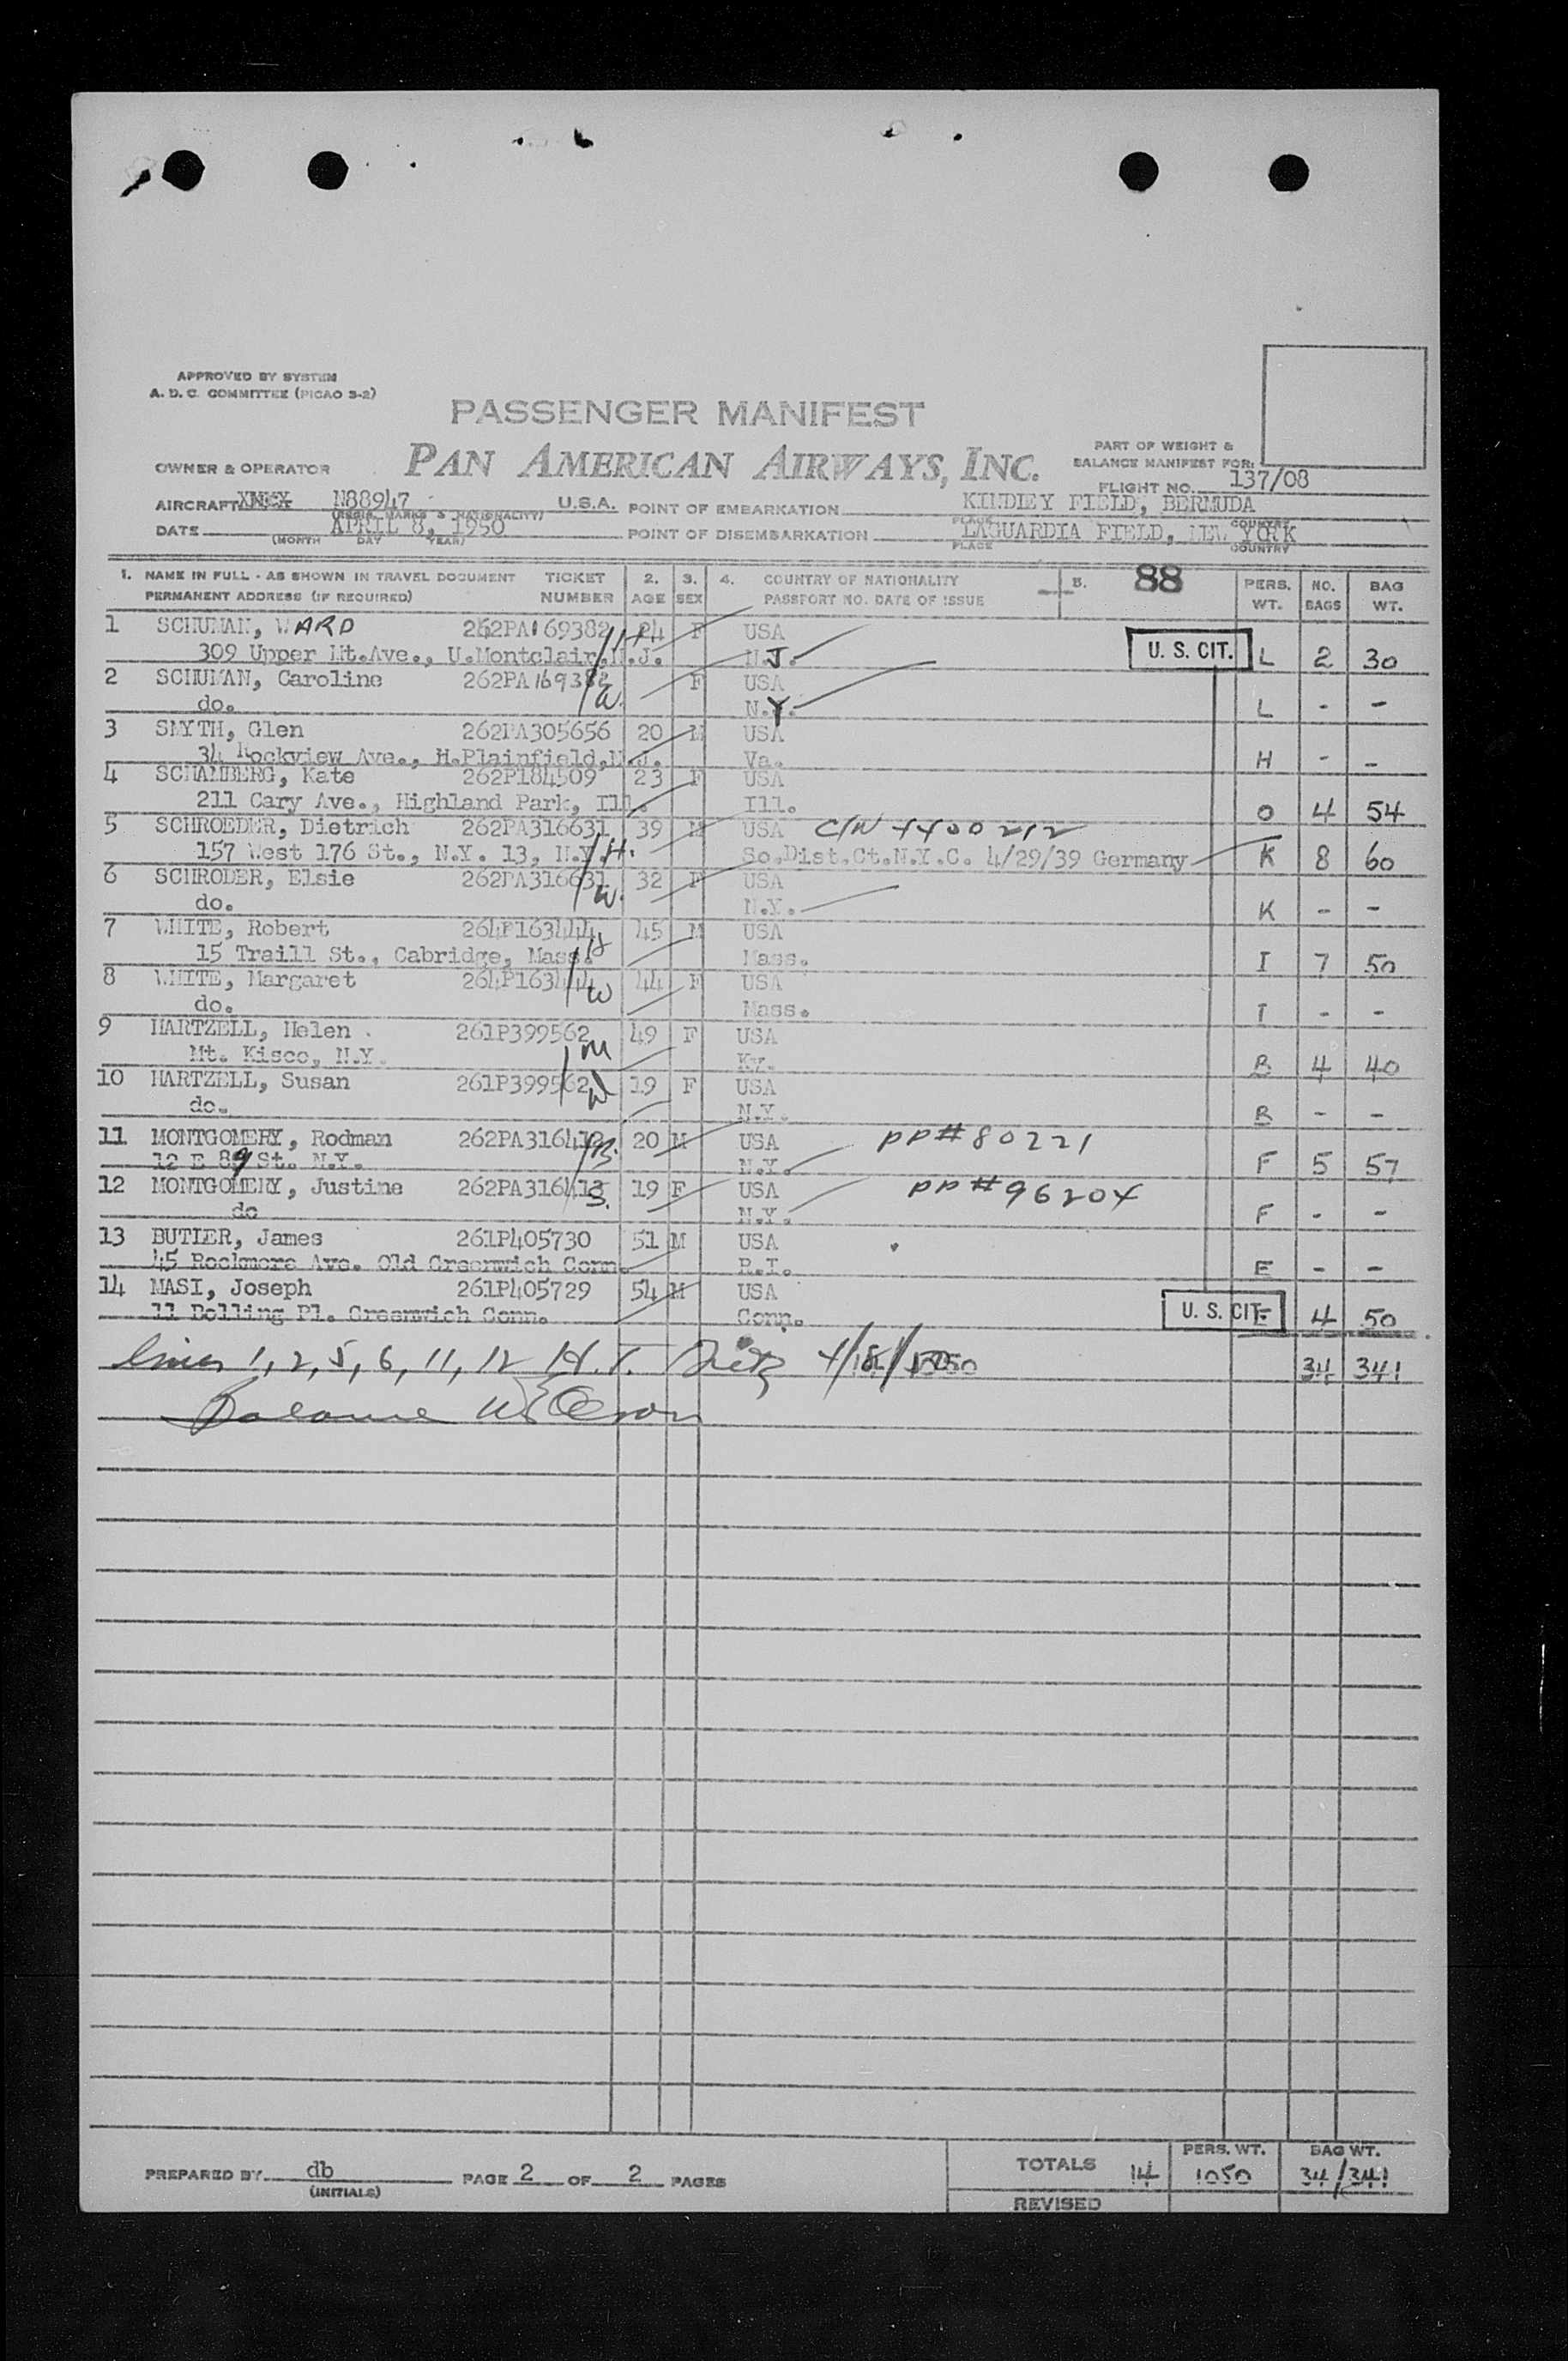 APPROVED BY SYSTEM
A. D. C. COMMITTEE (PICAO S-2)
PASSENGER MANIFEST
PAN AMERICAN AIRWAYS, INC.
OWNER & OPERATOR
PART OF WEIGHT &
BALANCE MANIFEST FOR:
FLIGHT NO. 137/08
AIRCRAFT N88947 U.S.A. POINT OF EMBARKATION KINDLEY FIELD, BERMUDA
(REGIS. MARKS & NATIONALITY) PLACE COUNTRY
DATE APRIL 8, 1950 POINT OF DISEMBARKATION LAGUARDIA FIELD, NEW YORK
(MONTH DAY YEAR) PLACE COUNTRY
1. NAME IN FULL - AS SHOWN IN TRAVEL DOCUMENT TICKET 2. 3. 4. COUNTRY OF NATIONALITY 5. 88 PERS. NO. BAG
PERMANENT ADDRESS (IF REQUIRED) NUMBER AGE SEX PASSPORT NO. DATE OF ISSUE WT. BAGS WT.
1 SCHUMAN, WARD 262PA169382 24 F USA
309 Upper Mt.Ave., U.Montclair,N.J. N.J. U. S. CIT. L 2 30
2 SCHUMAN, Caroline 262PA169382 F USA
do. W. N.Y. L - -
3 SMYTH, Glen 262PA305656 20 M USA
34 Rockview Ave., H.Plainfield,N.J. Va. H - -
4 SCHAMBERG, Kate 262P184509 23 F USA
211 Cary Ave., Highland Park, Ill. Ill. O 4 54
5 SCHROEDER, Dietrich 262PA316631 39 M USA C/N 4400212
157 West 176 St., N.Y. 13, N.Y. H. So.Dist.Ct.N.Y.C. 4/29/39 Germany K 8 60
6 SCHRODER, Elsie 262PA316631 32 F USA
do. W. N.Y. K - -
7 WHITE, Robert 264P163444 45 M USA
15 Traill St., Cabridge, Mass. H Mass. I 7 50
8 WHITE, Margaret 264P163444 44 F USA
do. W Mass. I - -
9 HARTZELL, Helen 261P399562 49 F USA
Mt. Kisco, N.Y. M Ky. B 4 40
10 HARTZELL, Susan 261P399562 19 F USA
do. N.Y. B - -
11 MONTGOMERY, Rodman 262PA316412 20 M USA PP#80221
12 E 89 St. N.Y. B. N.Y. F 5 57
12 MONTGOMERY, Justine 262PA316413 19 F USA PP#96204
do S. N.Y. F - -
13 BUTLER, James 261P405730 51 M USA
45 Rockmere Ave. Old Greenwich Conn. R.I. E - -
14 MASI, Joseph 261P405729 54 M USA
11 Bolling Pl. Greenwich Conn. Conn. U. S. CIT. E 4 50
lines 1, 2, 5, 6, 11, 12 H.T. Dietz 34 341
Balance
PREPARED BY db PAGE 2 OF 2 PAGES
(INITIALS)
PERS. WT. BAG WT.
TOTALS 14 1050 34/341
REVISED